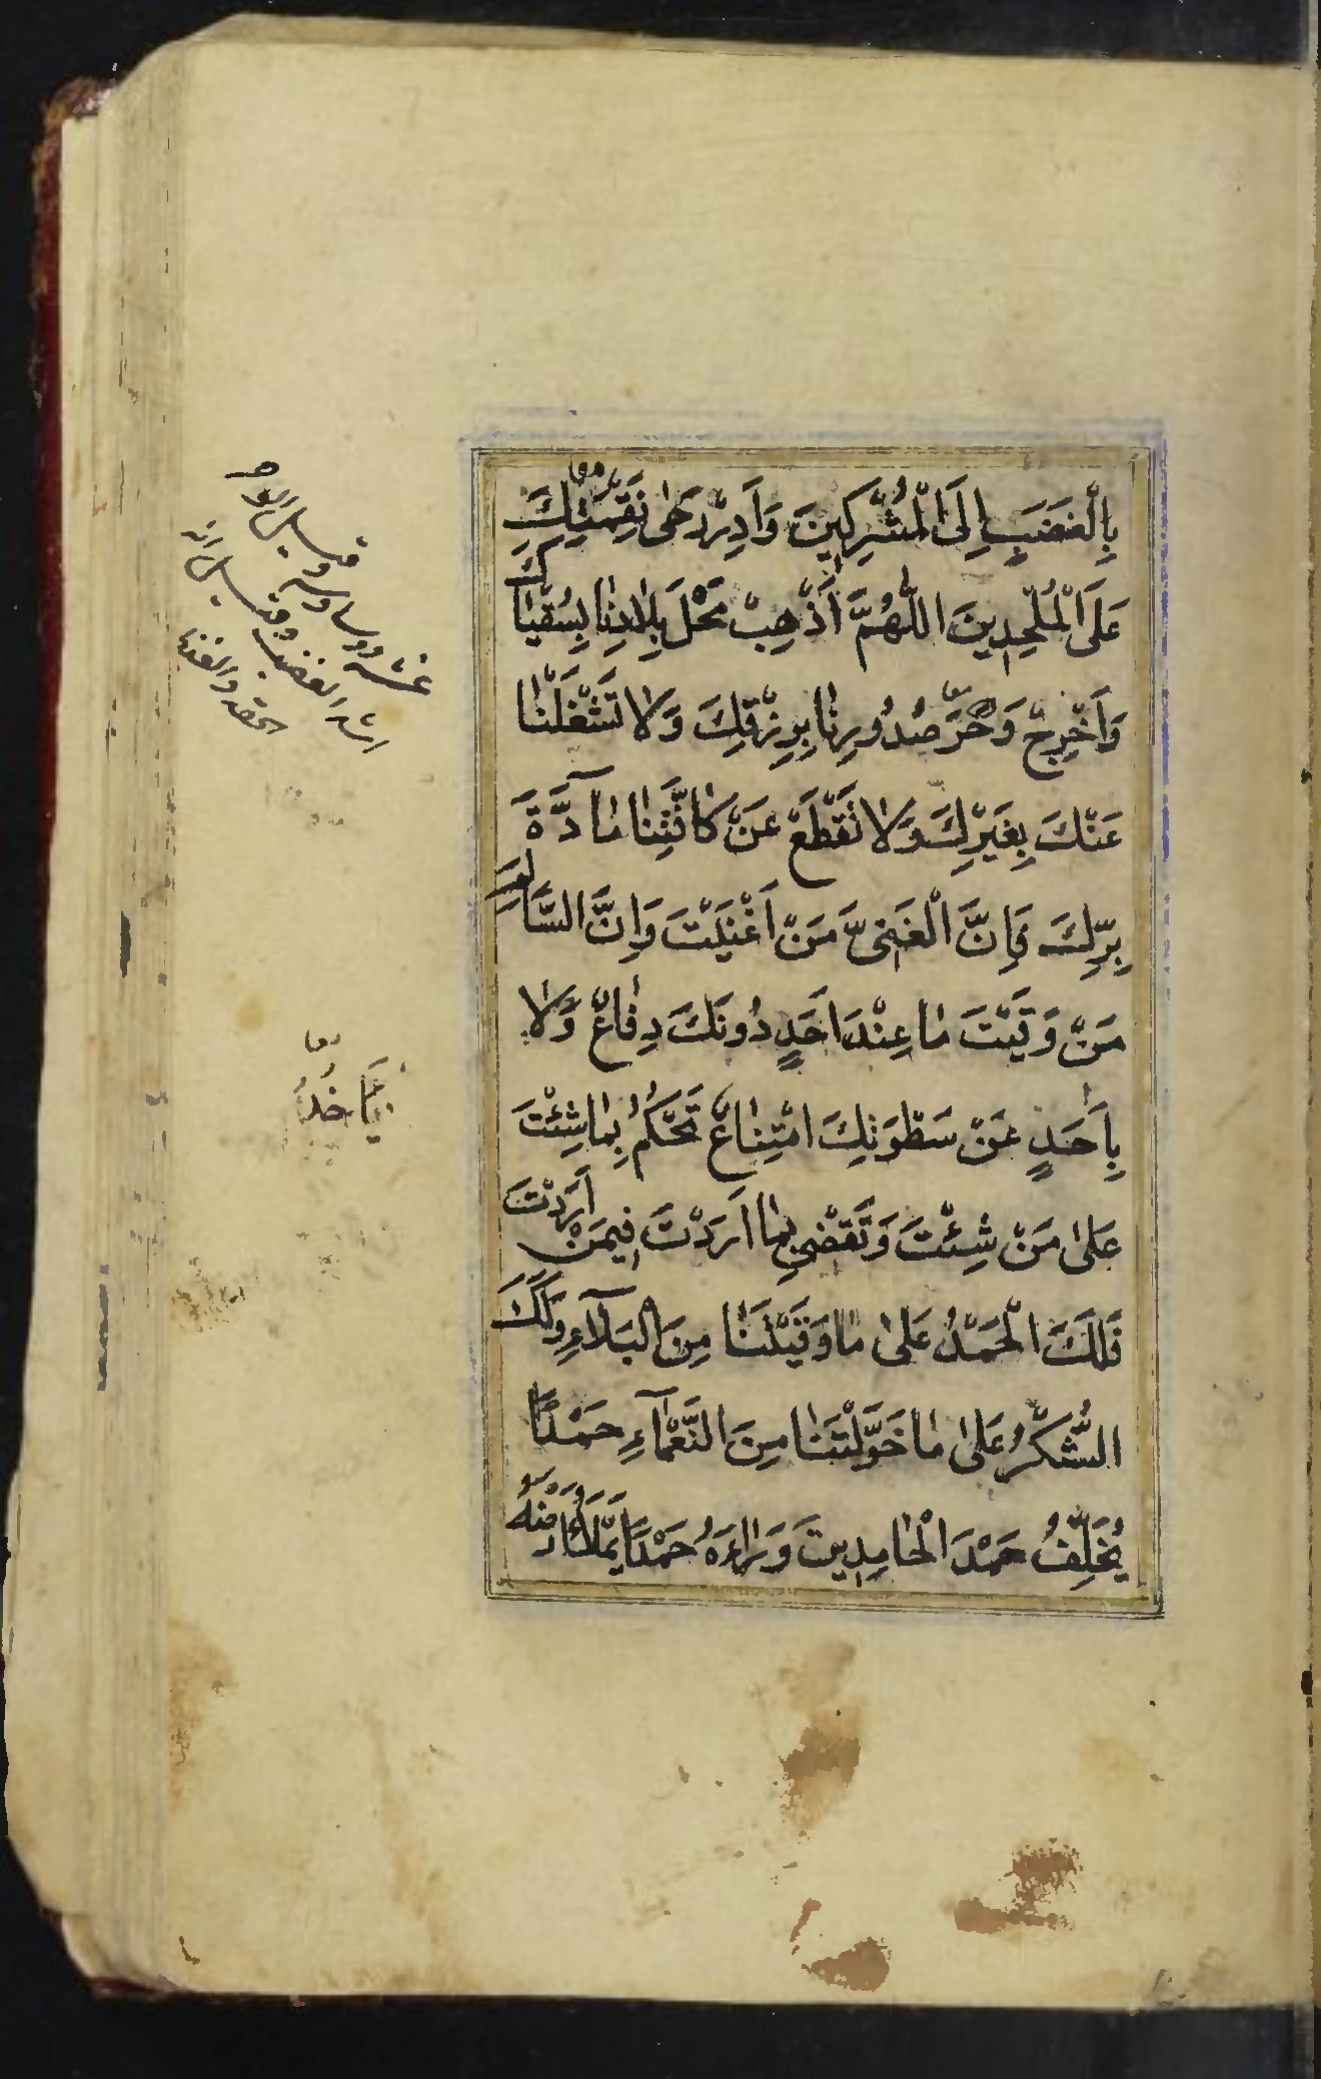 بِالْغَضَبِ إِلَى الْمُشْرِكِينَ وَأَدِرْ رَحىٰ نَقِمَتِكَ
عَلَى الْمُلْحِدِينَ اللّٰهُمَّ أَذْهِبْ مَحْلَ بِلادِنا بِسُقْياكَ
وَأَخْرِجْ وَحَرَ صُدُورِنا بِرِزْقِكَ وَلا تَشْغَلْنا
عَنْكَ بِغَيْرِكَ وَلا تَقْطَعْ عَنْ كافَّتِنا مآدَّةَ
بِرِّكَ فَإِنَّ الْغَنِىَّ مَنْ أَغْنَيْتَ وَإِنَّ السَّالِمَ
مَنْ وَقَيْتَ ما عِنْدَ أَحَدٍ دُونَكَ دِفاعٌ وَلا
بِأَحَدٍ عَنْ سَطْوَتِكَ امْتِناعٌ تَحْكُمُ بِما شِئْتَ
عَلىٰ مَنْ شِئْتَ وَتَقْضِي بِما أَرَدْتَ فِيمَنْ أَرَدْتَ
فَلَكَ الْحَمْدُ عَلىٰ ما وَقَيْتَنا مِنَ الْبَلآءِ وَلَكَ
الشُّكْرُ عَلىٰ ما خَوَّلْتَنا مِنَ النَّعْمآءِ حَمْدًا
يُخَلِّفُ حَمْدَ الْحامِدِينَ وَراءَهُ حَمْدًا يَمْلَأُ أَرْضَهُ